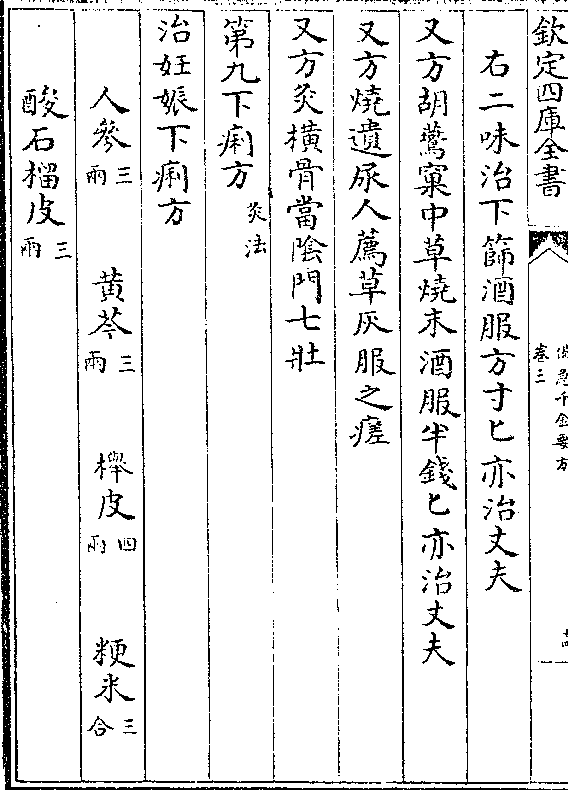 欽定四庫全書
備急千金要方
卷三
右二味治下篩酒服方寸匕亦治丈夫
又方胡鷰窠中草燒末酒服半錢匕亦治丈夫
又方燒遺尿人薦草灰服之瘥
又方灸橫骨當陰門七壯
第九下痢方灸法
治妊娠下痢方
人參三兩 黄芩三兩 櫸皮四兩 粳米三合
酸石榴皮三兩